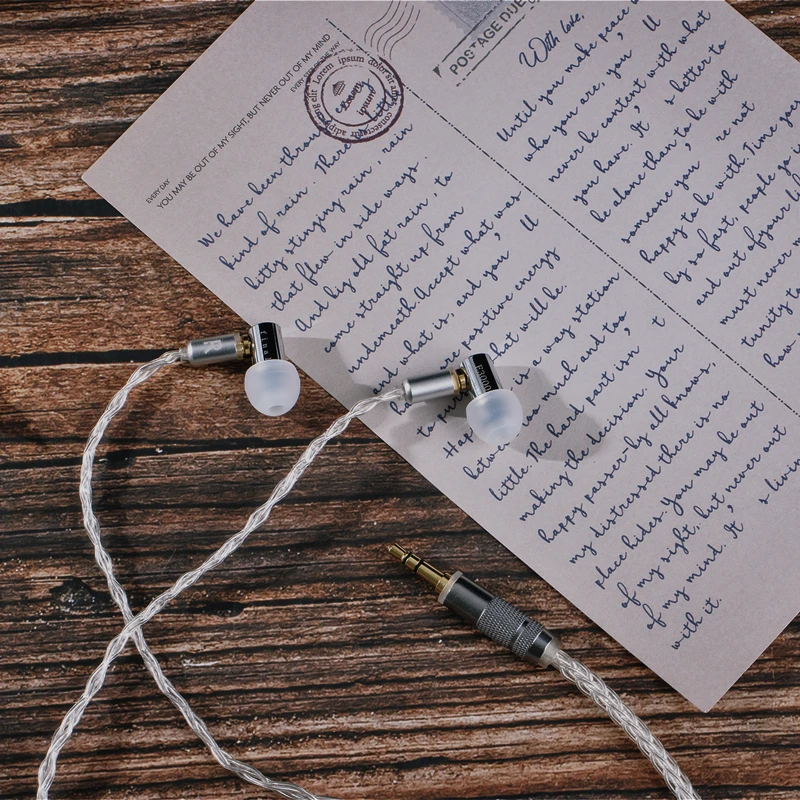 EVERY DAY
YOU MAY BE OUT OF MY SIGHT, BUT NEVER OUT OF MY MIND
Lorem ipsum dolor sit amet
consectetur
adipiscing elit
POSTAGE DUE
We have been through
kind of rain. There
bitty stinging rain, rain
that flew in side ways.
And big old fat rain, to
come straight up from
underneath. Accept what was
and what is, and you ' ll
positive energy
what will be.
Happ is a way station
betwe too much and too
little. The hard part isn ' t
making the decision. Your
happy passer-by all knows,
my distressed there is no
place hides. You may be out
of my sight, but never out
of my mind. It ' s livin
with it.
With love,
Until you make peace w
who you are, you ' ll
never be content with what
you have. It ' s better to
be alone than to be with
someone you ' re not
happy to be with. Time goes
by so fast, people go
and out of your li
must never m
tunity to
how
E3000